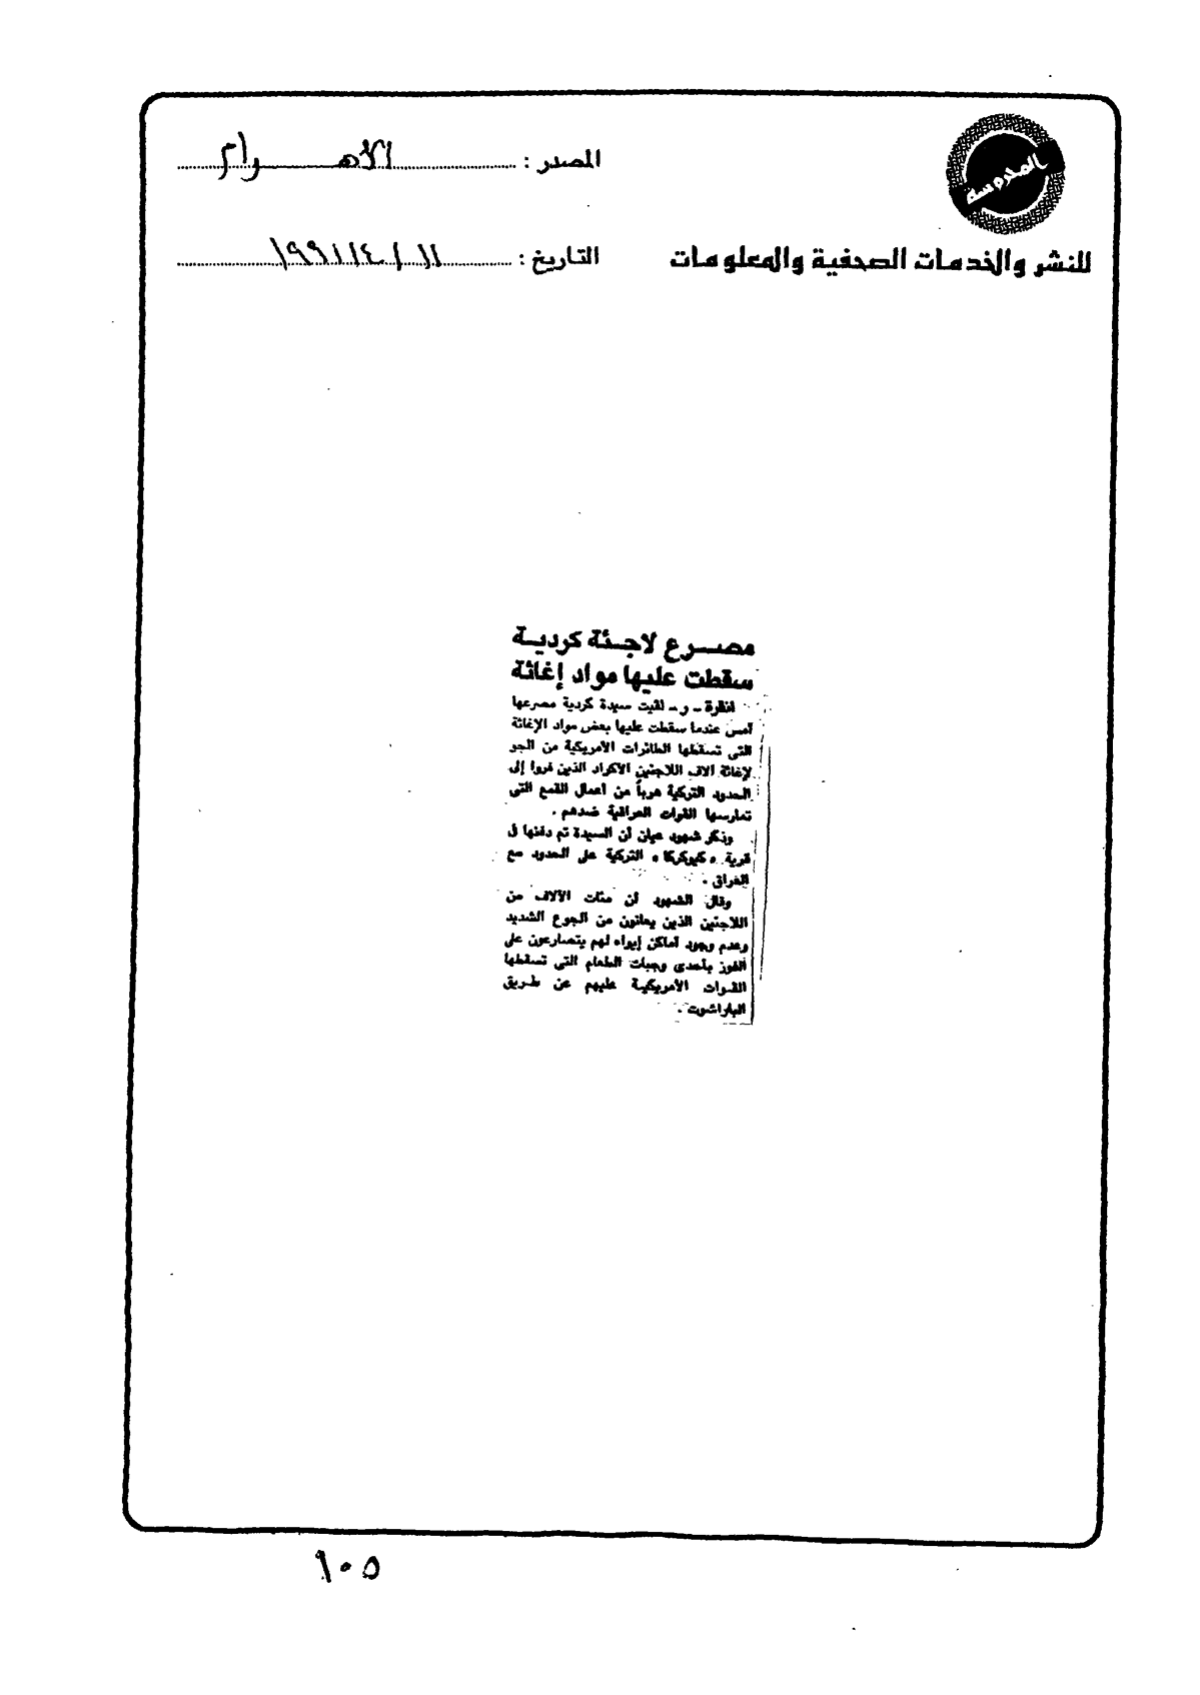 المحروسة
للنشر والخدمات الصحفية والمعلومات
المصدر : الأهرام
التاريخ : ١١ / ٤ / ١٩٩١
مصرع لاجئة كردية
سقطت عليها مواد إغاثة
انقرة ـ ر ـ لقيت سيدة كردية مصرعها
أمس عندما سقطت عليها بعض مواد الإغاثة
التى تسقطها الطائرات الأمريكية من الجو
لإغاثة آلاف اللاجئين الأكراد الذين فروا إلى
الحدود التركية هرباً من أعمال القمع التى
تمارسها القوات العراقية ضدهم .
وذكر شهود عيان أن السيدة تم دفنها فى
قرية « كيوكركا » التركية على الحدود مع
العراق .
وقال الشهود أن مئات الآلاف من
اللاجئين الذين يعانون من الجوع الشديد
وعدم وجود أماكن إيواء لهم يتصارعون على
الفوز بأحدى وجبات الطعام التى تسقطها
القوات الأمريكية عليهم عن طريق
الباراشوت .
١٠٥